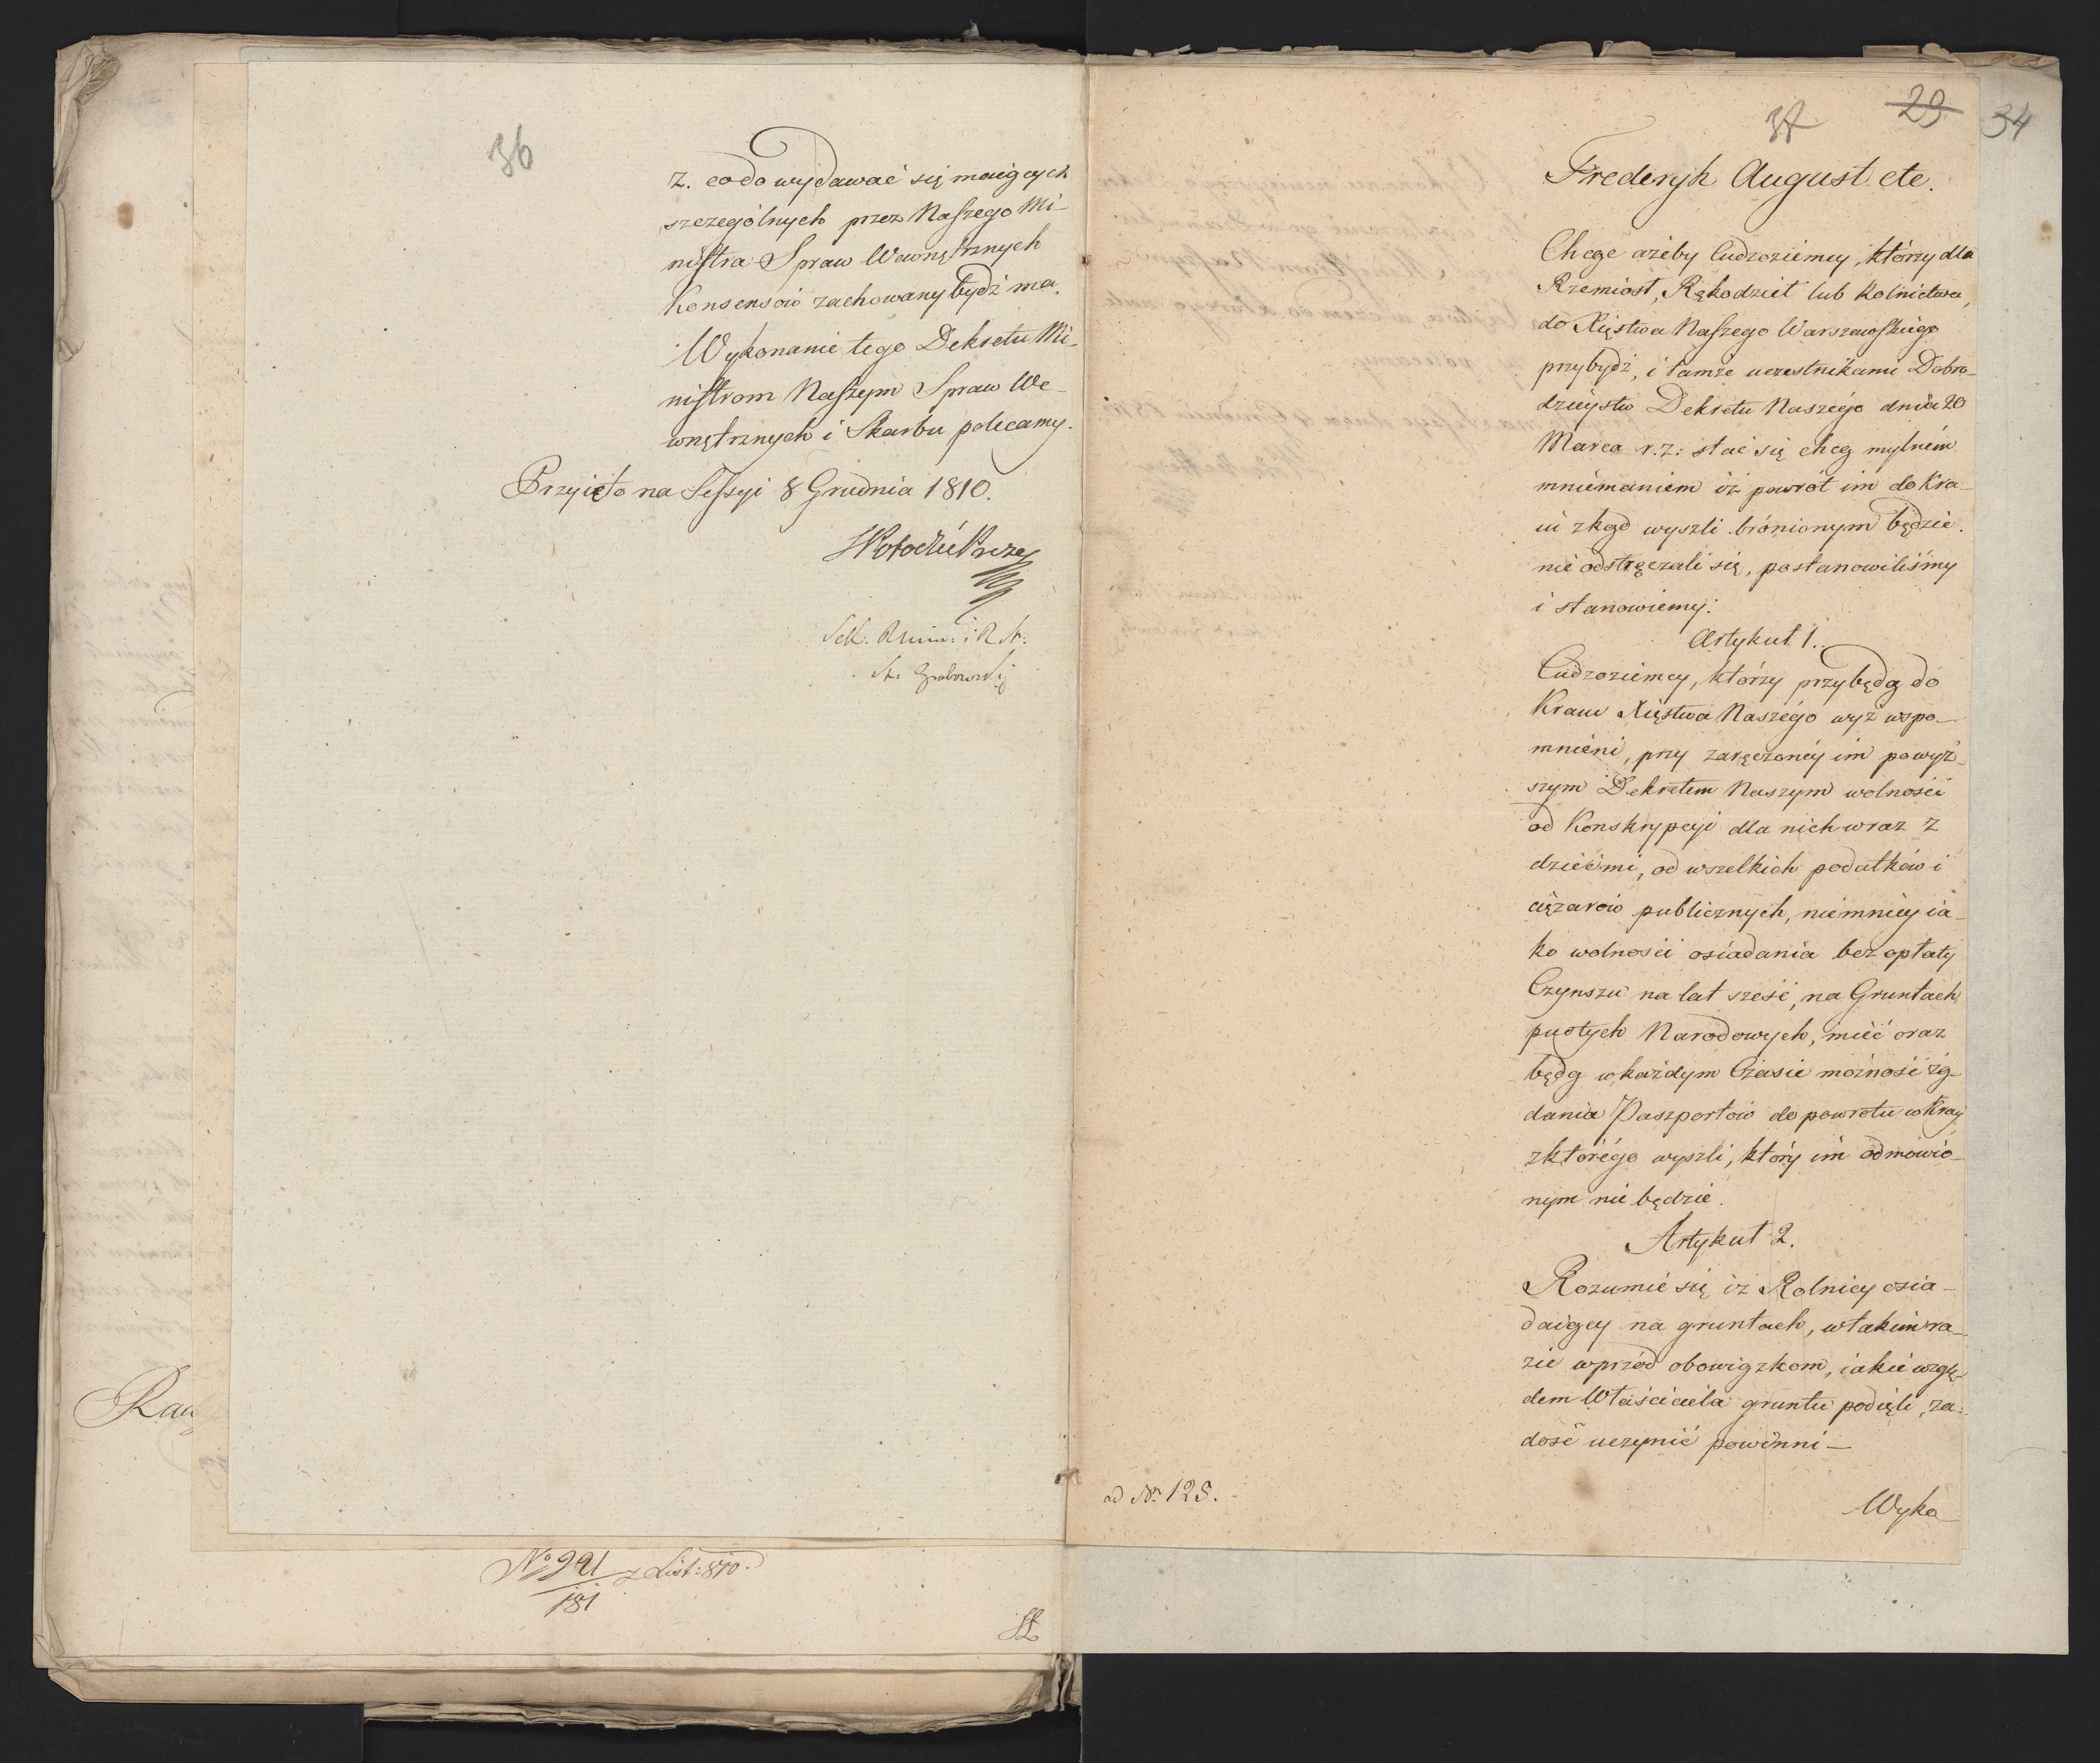 36
2. co do wydawać się maiących
szczególnych przez Naszego Mi-
nistra Spraw Wewnętrznych
Konsensów zachowany bydź ma.
Wykonanie tego Dekretu Mi-
nistrom Naszym Spraw We-
wnętrznych i Skarbu polecamy.
Przyięto na Sessyi 8 Grudnia 1810.
Sekr. i R. St:
St. Grabowski
No 991 z List: 810.
181
37
29
34
Frederyk August etc.
Chcąc ażeby Cudzoziemcy, którzy dla
Rzemiosł, Rękodzieł lub Rolnictwa,
do Xięstwa Naszego Warszawskiego
przybydź, i tamże uczestnikami Dobro-
dzieystw Dekretu Naszego dnia 20
Marca r. z: stać się chcą mylném
mniemaniem iż powrót im do Kra-
iu zkąd wyszli bronionym będzie.
nie odstręczali się, postanowiliśmy
i stanowiemy:
Artykuł 1.
Cudzoziemcy, którzy przybędą do
Kraiu Xięstwa Naszego wyż wspo-
mnieni, przy zaręczoney im powyż-
szym Dekretem Naszym wolności
od Konskrypcyi dla nich wraz z
dziećmi, od wszelkich podatków i
ciężarów publicznych, niemniey ia-
ko wolności osiadania bez opłaty
Czynszu na lat sześć, na Gruntach
pustych Narodowych, mieć oraz
będą w każdym Czasie możność żą-
dania Paszportów do powrotu w Kray
z którego wyszli, który im odmówio-
nym nie będzie.
Artykuł 2.
Rozumie się iż Rolnicy osia-
daiący na gruntach, w takim ra-
zie wprzód obowiązkom, iakie wzglę-
dem Właściciela gruntu podięli, za-
dosć uczynić powinni —
ad No 125.
Wyko-